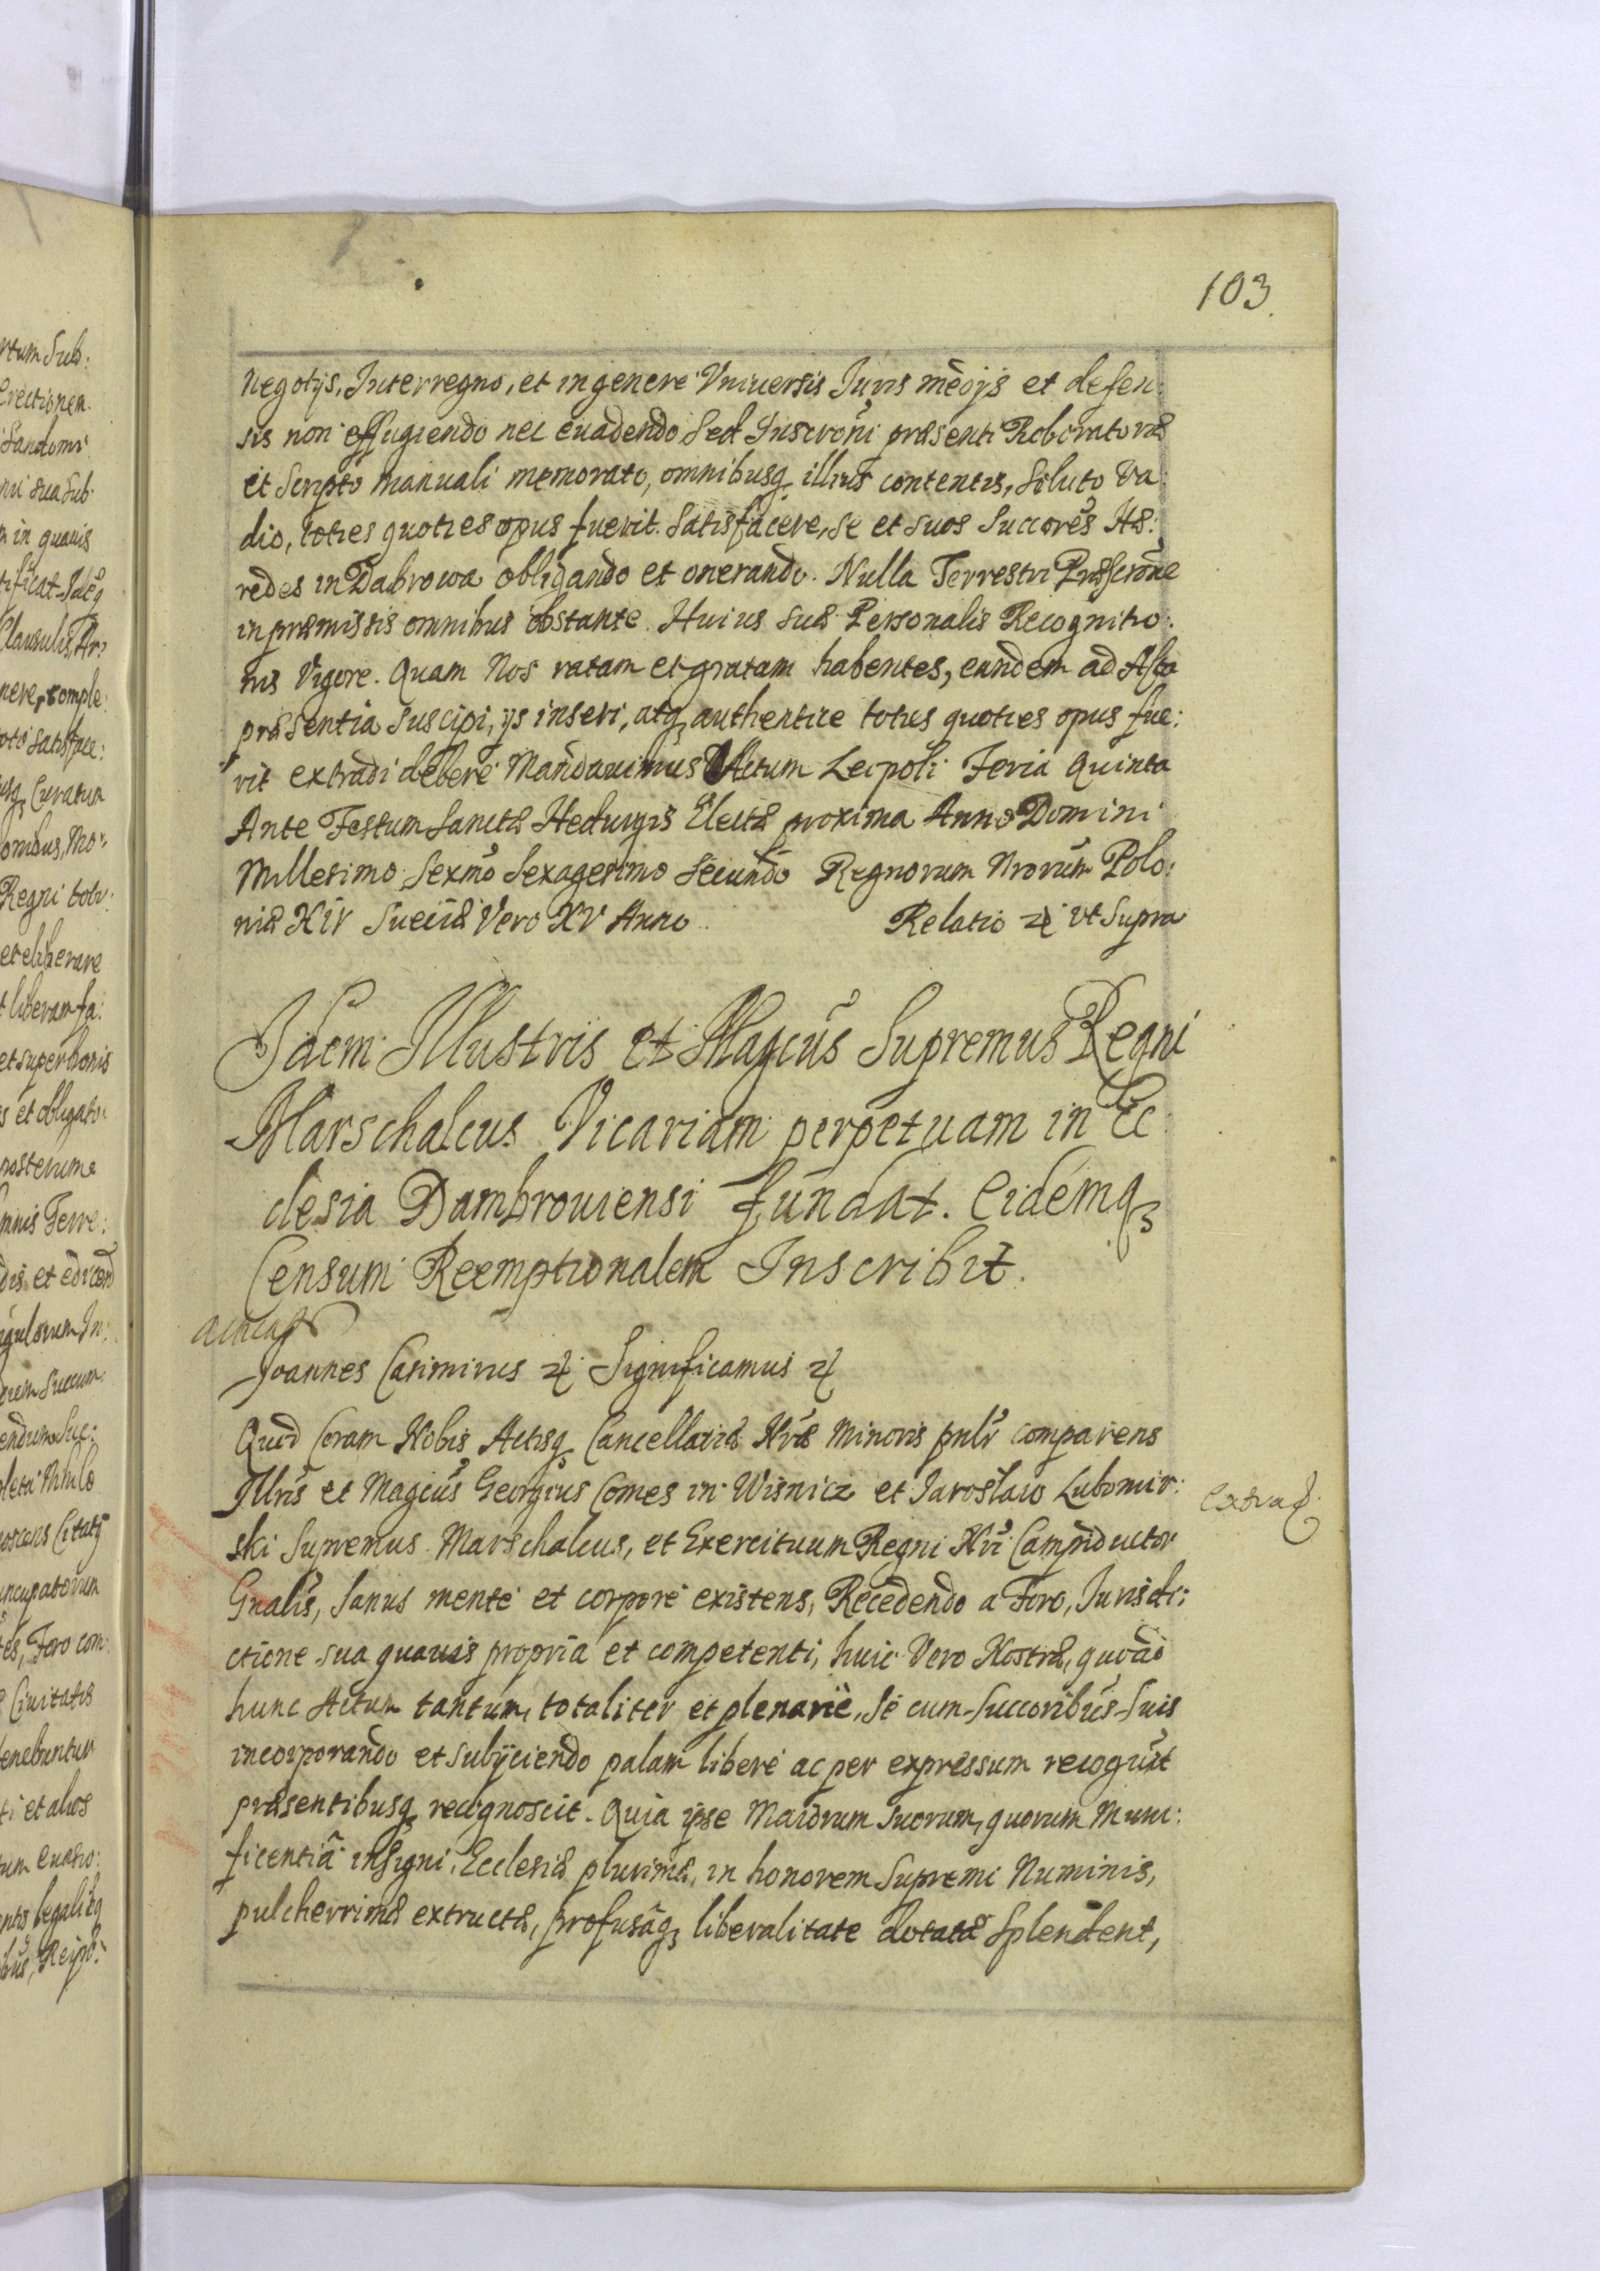 103.
negotijs, Interregno, et in genere Vniuersis Iuris medijs et defen:
sis non effugiendo nec euadendo Sed Inscroni præsenti Roboratoriæ
et Scripto manuali memorato, omnibusq illius contentis, Soluto Va:
dio, toties quoties opus fuerit. Satisfacere, se et suos Succores Hæ:
redes in Dabrowa obligando et onerando. Nulla Terrestri Præscrone
in præmissis omnibus obstante. Huius suæ Personalis Recognitio:
nis Vigore. Quam Nos ratam et gratam habentes, eandem ad Acta
præsentia suscipi, ijs inseri, atq authentice toties quoties opus fue:
rit extradi debere Mandauimus Actum Leopoli Feria Quinta
Ante Festum Sanctæ Heduigis Electæ proxima Anno Domini
Millesimo Sexmo Sexagesimo Secundo Regnorum Nrorum Polo:
niæ XIV Sueciæ Vero XV Anno Relatio etc vt Supra
Idem Illustris et Magcus Supremus Regni
Marschalcus Vicariam perpetuam in Ec
clesia Dambrouiensi fundat. Eidemq
Censum Reemptionalem Inscribit.
Joannes Casimirus etc Significamus etc
Quod Coram Nobis Actisq Cancellariæ Nræ Minoris pnlr comparens
Illris et Magcus Georgius Comes in Wisnicz et Jaroslaw Lubomir:
extrad
ski Supremus Marschalcus, et Exercituum Regni Nri Campiductor
Gnalis, Sanus mente et corpore existens, Recedendo a Foro, Jurisdi:
ctione sua quauis propria et competenti, huic Vero Nostræ, quoad
hunc Actum tantum, totaliter et plenarie, se cum Succoribus Suis
incorporando et subijciendo palam libere ac per expressum recognit
præsentibusq recognoscit. Quia ipse Maiorum suorum, quorum Muni:
ficentiâ insigni, Ecclesiæ plurimæ, in honorem Supremi Numinis,
pulcherrimæ extructæ, profusâq liberalitate dotatæ Splendent,